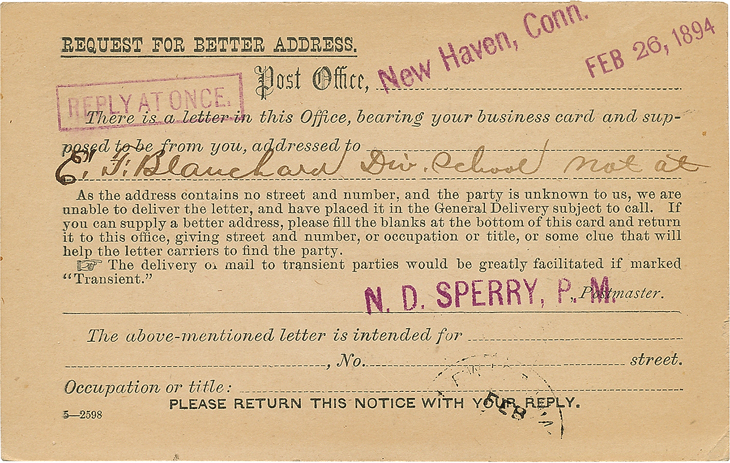 REQUEST FOR BETTER ADDRESS.
Post Office, New Haven, Conn. FEB 26, 1894
REPLY AT ONCE.
There is a letter in this Office, bearing your business card and sup-
posed to be from you, addressed to
E. F. Blanchard Div. School not at
As the address contains no street and number, and the party is unknown to us, we are
unable to deliver the letter, and have placed it in the General Delivery subject to call. If
you can supply a better address, please fill the blanks at the bottom of this card and return
it to this office, giving street and number, or occupation or title, or some clue that will
help the letter carriers to find the party.
☞ The delivery of mail to transient parties would be greatly facilitated if marked
“Transient.”
N. D. SPERRY, P. M. , Postmaster.
The above-mentioned letter is intended for
, No. street.
Occupation or title:
PLEASE RETURN THIS NOTICE WITH YOUR REPLY.
FEB
5—2598